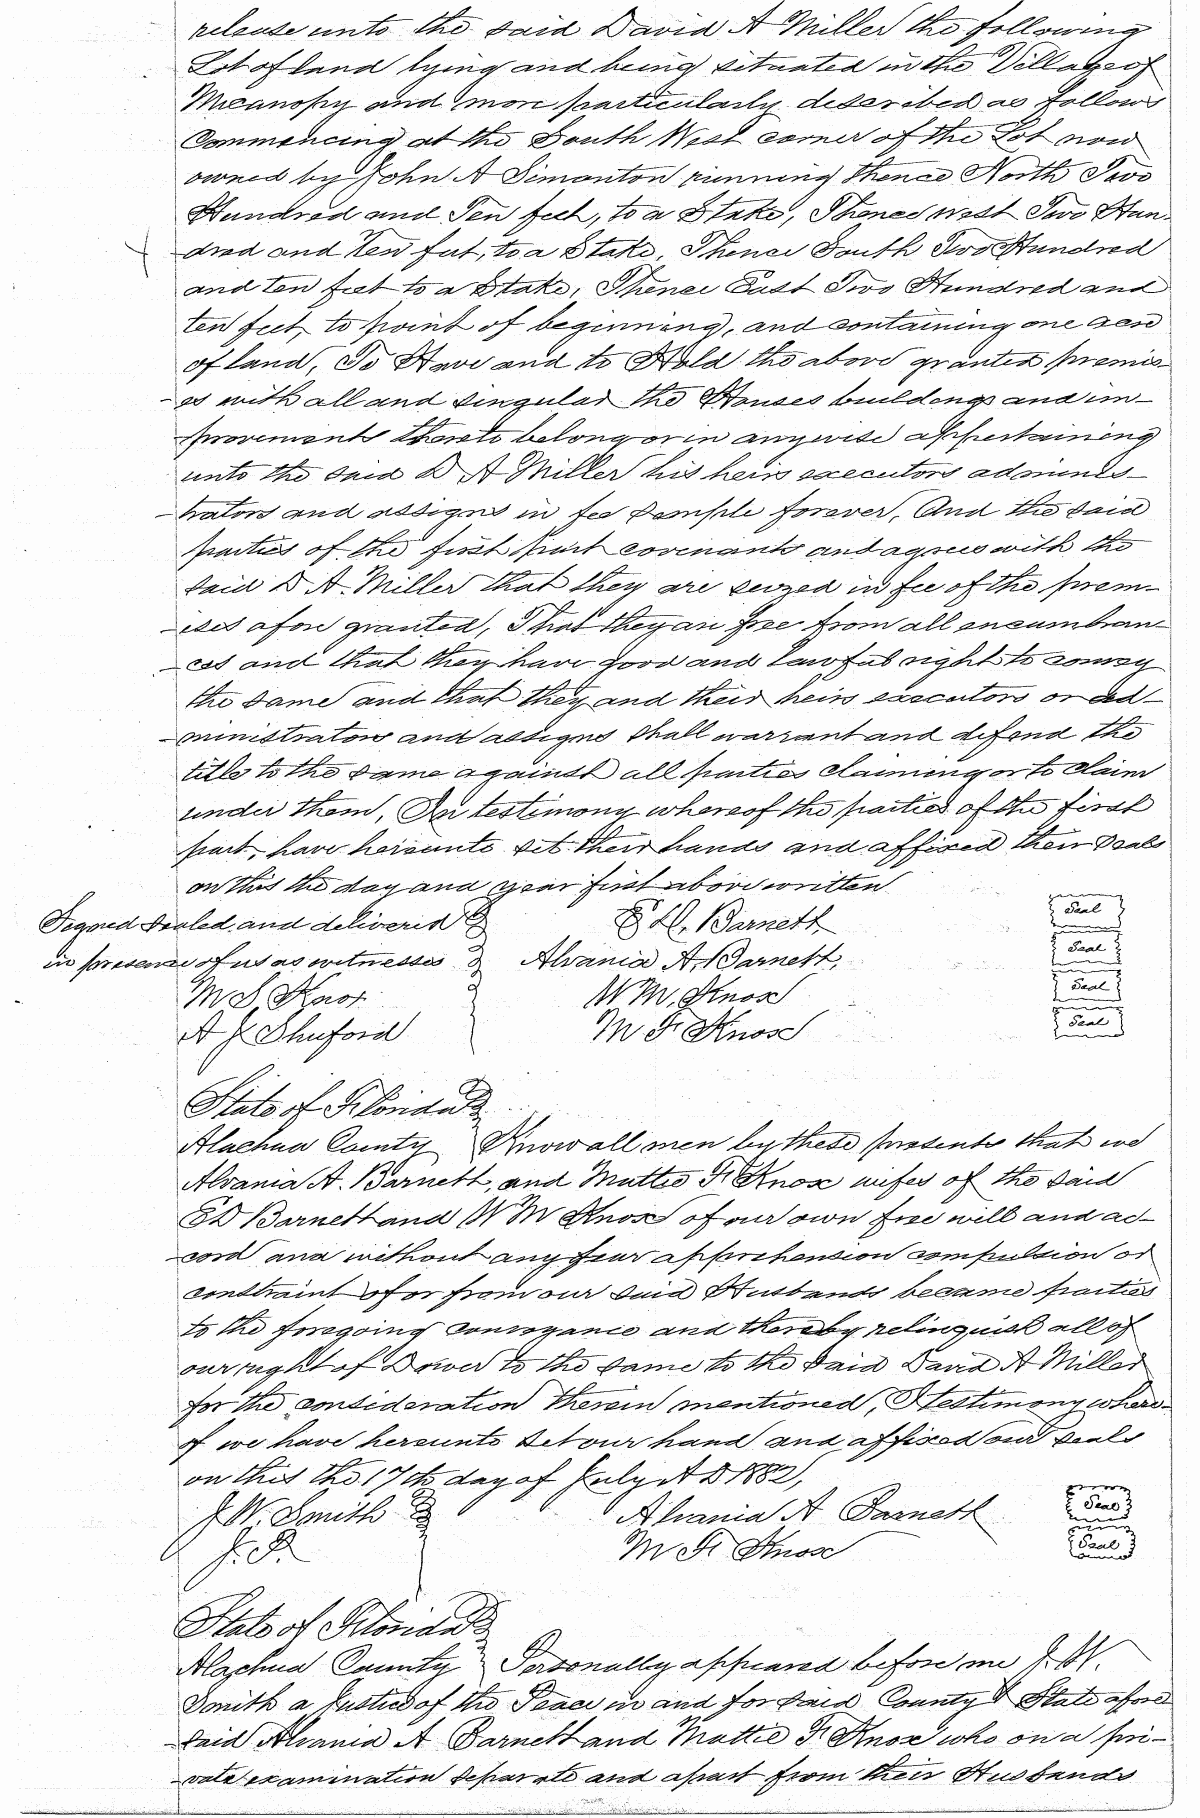 release unto the said David A Miller the following
Lot of land lying and being situated in the Village of
Micanopy and more particularly described as follows
Commencing at the South West corner of the Lot now
owned by John A Simonton running thence North Two
Hundred and Ten feet, to a Stake, Thence west Two Hun-
dred and ten feet, to a Stake, Thence South Two Hundred
and ten feet to a Stake, Thence East Two Hundred and
ten feet, to point of beginning, and containing one acre
of land, To Have and to Hold the above granted premis-
es with all and singular the Houses buildings and im-
provements thereto belong or in anywise appertaining
unto the said D A Miller his heirs executors adminis-
trators and assigns in fee simple forever, And the said
parties of the first part covenants and agrees with the
said D A. Miller that they are seized in fee of the prem-
ises afore granted, That they are free from all encumbran-
ces and that they have good and lawful right to convey
the same and that they and their heirs executors or ad-
ministrators and assigns shall warrant and defend the
title to the same against all parties claiming or to claim
under them, In testimony whereof the parties of the first
part, have hereunto set their hands and affixed their seals
on this the day and year first above written
Signed sealed and delivered E D. Barnett Seal
in presence of us as witnesses Alvania A. Barnett, Seal
M S Knox W M, Knox Seal
A J Shuford M F Knox Seal
State of Florida
Alachua County Know all men by these presents that we
Alvania A. Barnett, and Mattie F Knox wifes of the said
E D Barnett and W M Knox of our own free will and ac-
cord and without any fear apprehension compulsion or
constraint of or from our said Husbands became parties
to the foregoing conveyance and thereby relinquish all of
our right of Dower to the same to the said David A Miller
for the consideration therein mentioned, I testimony where-
of we have hereunto set our hand and affixed our seals
on this the 17th day of July A D 1882,
J W. Smith Alvania A Barnett Seal
J. P. M F Knox Seal
State of Florida
Alachua County Personally appeared before me J. W.
Smith a Justice of the Peace in and for said County & State afore
said Alvania A Barnett and Mattie F Knox who on a pri-
vate examination separate and apart from their Husbands